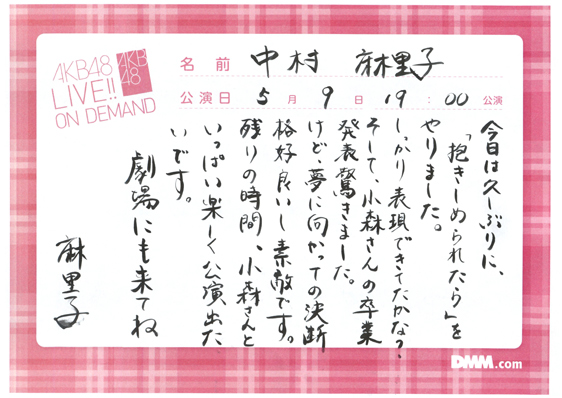 AKB48
LIVE!!
ON DEMAND
AKB
48
名前 中村 麻里子
公演日 5月9日 19:00 公演
今日は久しぶりに、
「抱きしめられたら」を
やりました。
しっかり表現できてたかな?
そして、小森さんの卒業
発表驚きました。
けど、夢に向かっての決断
格好良いし素敵です。
残りの時間、小森さんと
いっぱい楽しく公演出た
いです。
劇場にも来てね
麻里子
DMM.com